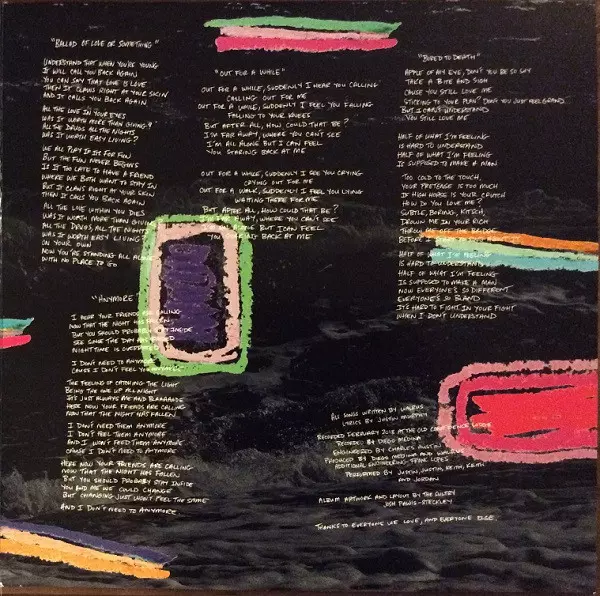 "BALLAD OF LOVE OR SOMETHING"
UNDERSTAND THAT WHEN YOU'RE YOUNG
IT WILL CALL YOU BACK AGAIN
YOU CAN SAY THAT LOVE IS LOVE
THEN IT CLAWS RIGHT AT YOUR SKIN
AND IT CALLS YOU BACK AGAIN
ALL THE LOVE IN YOUR EYES
WAS IT WORTH MORE THAN GIVING?
ALL THE DRUGS ALL THE NIGHTS
WAS IT WORTH EASY LIVING?
WE ALL PLAY IT IS FOR FUN
BUT THE FUN NEVER BEGINS
IS IT TOO LATE TO HAVE A FRIEND
WHERE WE BOTH WANT TO STAY IN
BUT IT CLAWS RIGHT AT YOUR SKIN
THEN IT CALLS YOU BACK AGAIN
ALL THE LOVE WITHIN YOU DIES
WAS IT WORTH MORE THAN GIVING
ALL THE DRUGS, ALL THE NIGHTS
WAS IT WORTH EASY LIVING
ON YOUR OWN
NOW YOU'RE STANDING ALL ALONE
WITH NO PLACE TO GO
"ANYMORE"
I HEAR YOUR FRIENDS ARE CALLING
NOW THAT THE NIGHT HAS FALLEN
BUT YOU SHOULD PROBABLY STAY INSIDE
SEE SINCE THE DAY HAS
NIGHTTIME IS OVERRATED
I DON'T NEED TO ANYMORE
CAUSE I DON'T FEEL YOU ANYMORE
THE FEELING OF CATCHING THE LIGHT
BEING THE ONE UP ALL NIGHT
IT'S JUST ALWAYS ME AND BLAAAAADE
HERE NOW YOUR FRIENDS ARE CALLING
NOW THAT THE NIGHT HAS FALLEN
I DON'T NEED THEM ANYMORE
I DON'T FEEL THEM ANYMORE
AND I WON'T FEED THEM ANYMORE
CAUSE I DON'T NEED TO ANYMORE
HERE NOW YOUR FRIENDS ARE CALLING
NOW THAT THE NIGHT HAS FALLEN
BUT YOU SHOULD PROBABLY STAY INSIDE
YOU AND ME WE COULD CHANGE
BUT CHANGING JUST WON'T FEEL THE SAME
AND I DON'T NEED TO ANYMORE
"OUT FOR A WHILE"
OUT FOR A WHILE, SUDDENLY I HEAR YOU CALLING
CALLING OUT FOR ME
OUT FOR A WHILE, SUDDENLY I FEEL YOU FALLING
FALLING TO YOUR KNEES
BUT AFTER ALL, HOW COULD THAT BE?
I'M FAR AWAY, WHERE YOU CAN'T SEE
I'M ALL ALONE BUT I CAN FEEL
YOU STARING BACK AT ME
OUT FOR A WHILE, SUDDENLY I SEE YOU CRYING
CRYING OUT FOR ME
OUT FOR A WHILE, SUDDENLY I FEEL YOU LYING
WAITING THERE FOR ME
BUT AFTER ALL, HOW COULD THAT BE?
I'M FAR AWAY, WHERE YOU CAN'T SEE
I'M ALL ALONE BUT I CAN FEEL
YOU STARING BACK AT ME
"BORED TO DEATH"
APPLE OF MY EYE, DON'T YOU BE SO SHY
TAKE A BITE AND SIGH
CAUSE YOU STILL LOVE ME
STICKING TO YOUR PLAN, DON'T YOU JUST FEEL GRAND
BUT I CAN'T UNDERSTAND
YOU STILL LOVE ME
HALF OF WHAT I'M FEELING
IS HARD TO UNDERSTAND
HALF OF WHAT I'M FEELING
IS SUPPOSED TO MAKE A MAN
TOO COLD TO THE TOUCH,
YOUR PRETENSE IS TOO MUCH
IF HIGH HORSE IS YOUR CRUTCH
HOW DO YOU LOVE ME?
SUBTLE, BORING, KITSCH,
DROWN ME IN YOUR RICH
THROW ME OFF THE BRIDGE
BEFORE I
HALF OF WHAT I'M FEELING
IS HARD TO UNDERSTAND
HALF OF WHAT I'M FEELING
IS SUPPOSED TO MAKE A MAN
NOW EVERYONE'S SO DIFFERENT
EVERYONE'S SO BLAND
IT'S HARD TO FIGHT IN YOUR FIGHT
WHEN I DON'T UNDERSTAND
ALL SONGS WRITTEN BY WALRUS
LYRICS BY JUSTIN MURPHY
RECORDED FEBRUARY 2015 AT THE OLD CONFIDENCE LODGE
RECORDED BY DIEGO MEDINA
ENGINEERED BY CHARLES AUSTIN
PRODUCED BY DIEGO MEDINA AND WALRUS
ADDITIONAL ENGINEERING: FRANK LOPES
PERFORMED BY JUSTIN, JUSTIN, KEITH, KEITH
AND JORDAN
ALBUM ARTWORK AND LAYOUT BY THE SULTRY
JOSH PAWIS-STECKLEY
THANKS TO EVERYONE WE LOVE, AND EVERYONE ELSE